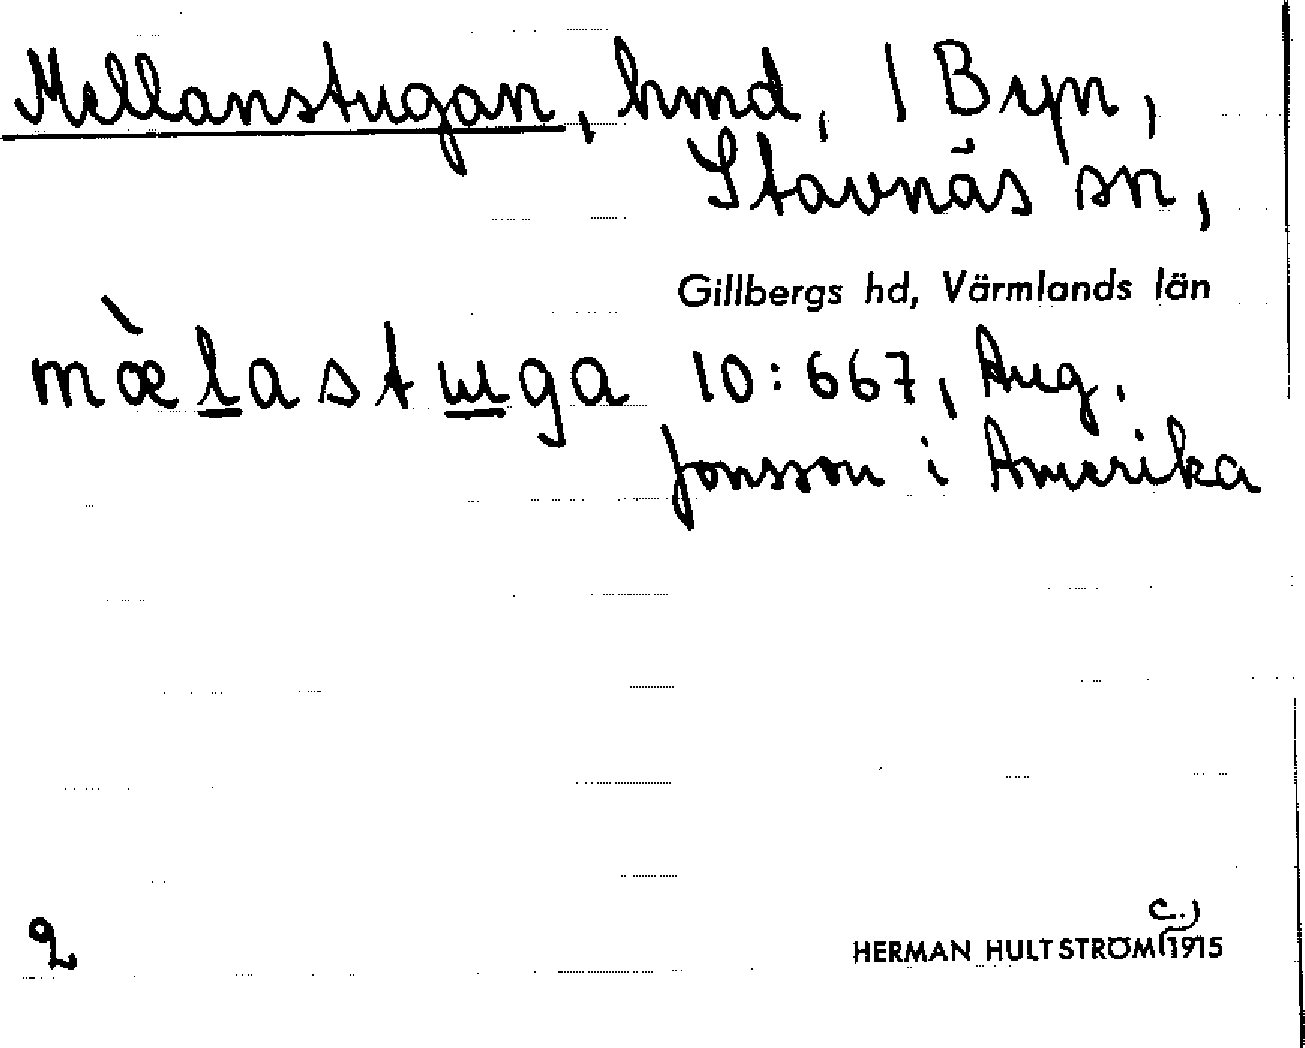 Mellanstugan, hmd, 1 Byn,
Stavnäs sn,
Gillbergs hd, Värmlands län
mæ̀lastɯga 10:667, Aug.
Jonsson i Amerika
2
HERMAN HULTSTRÖM (c.) 1915